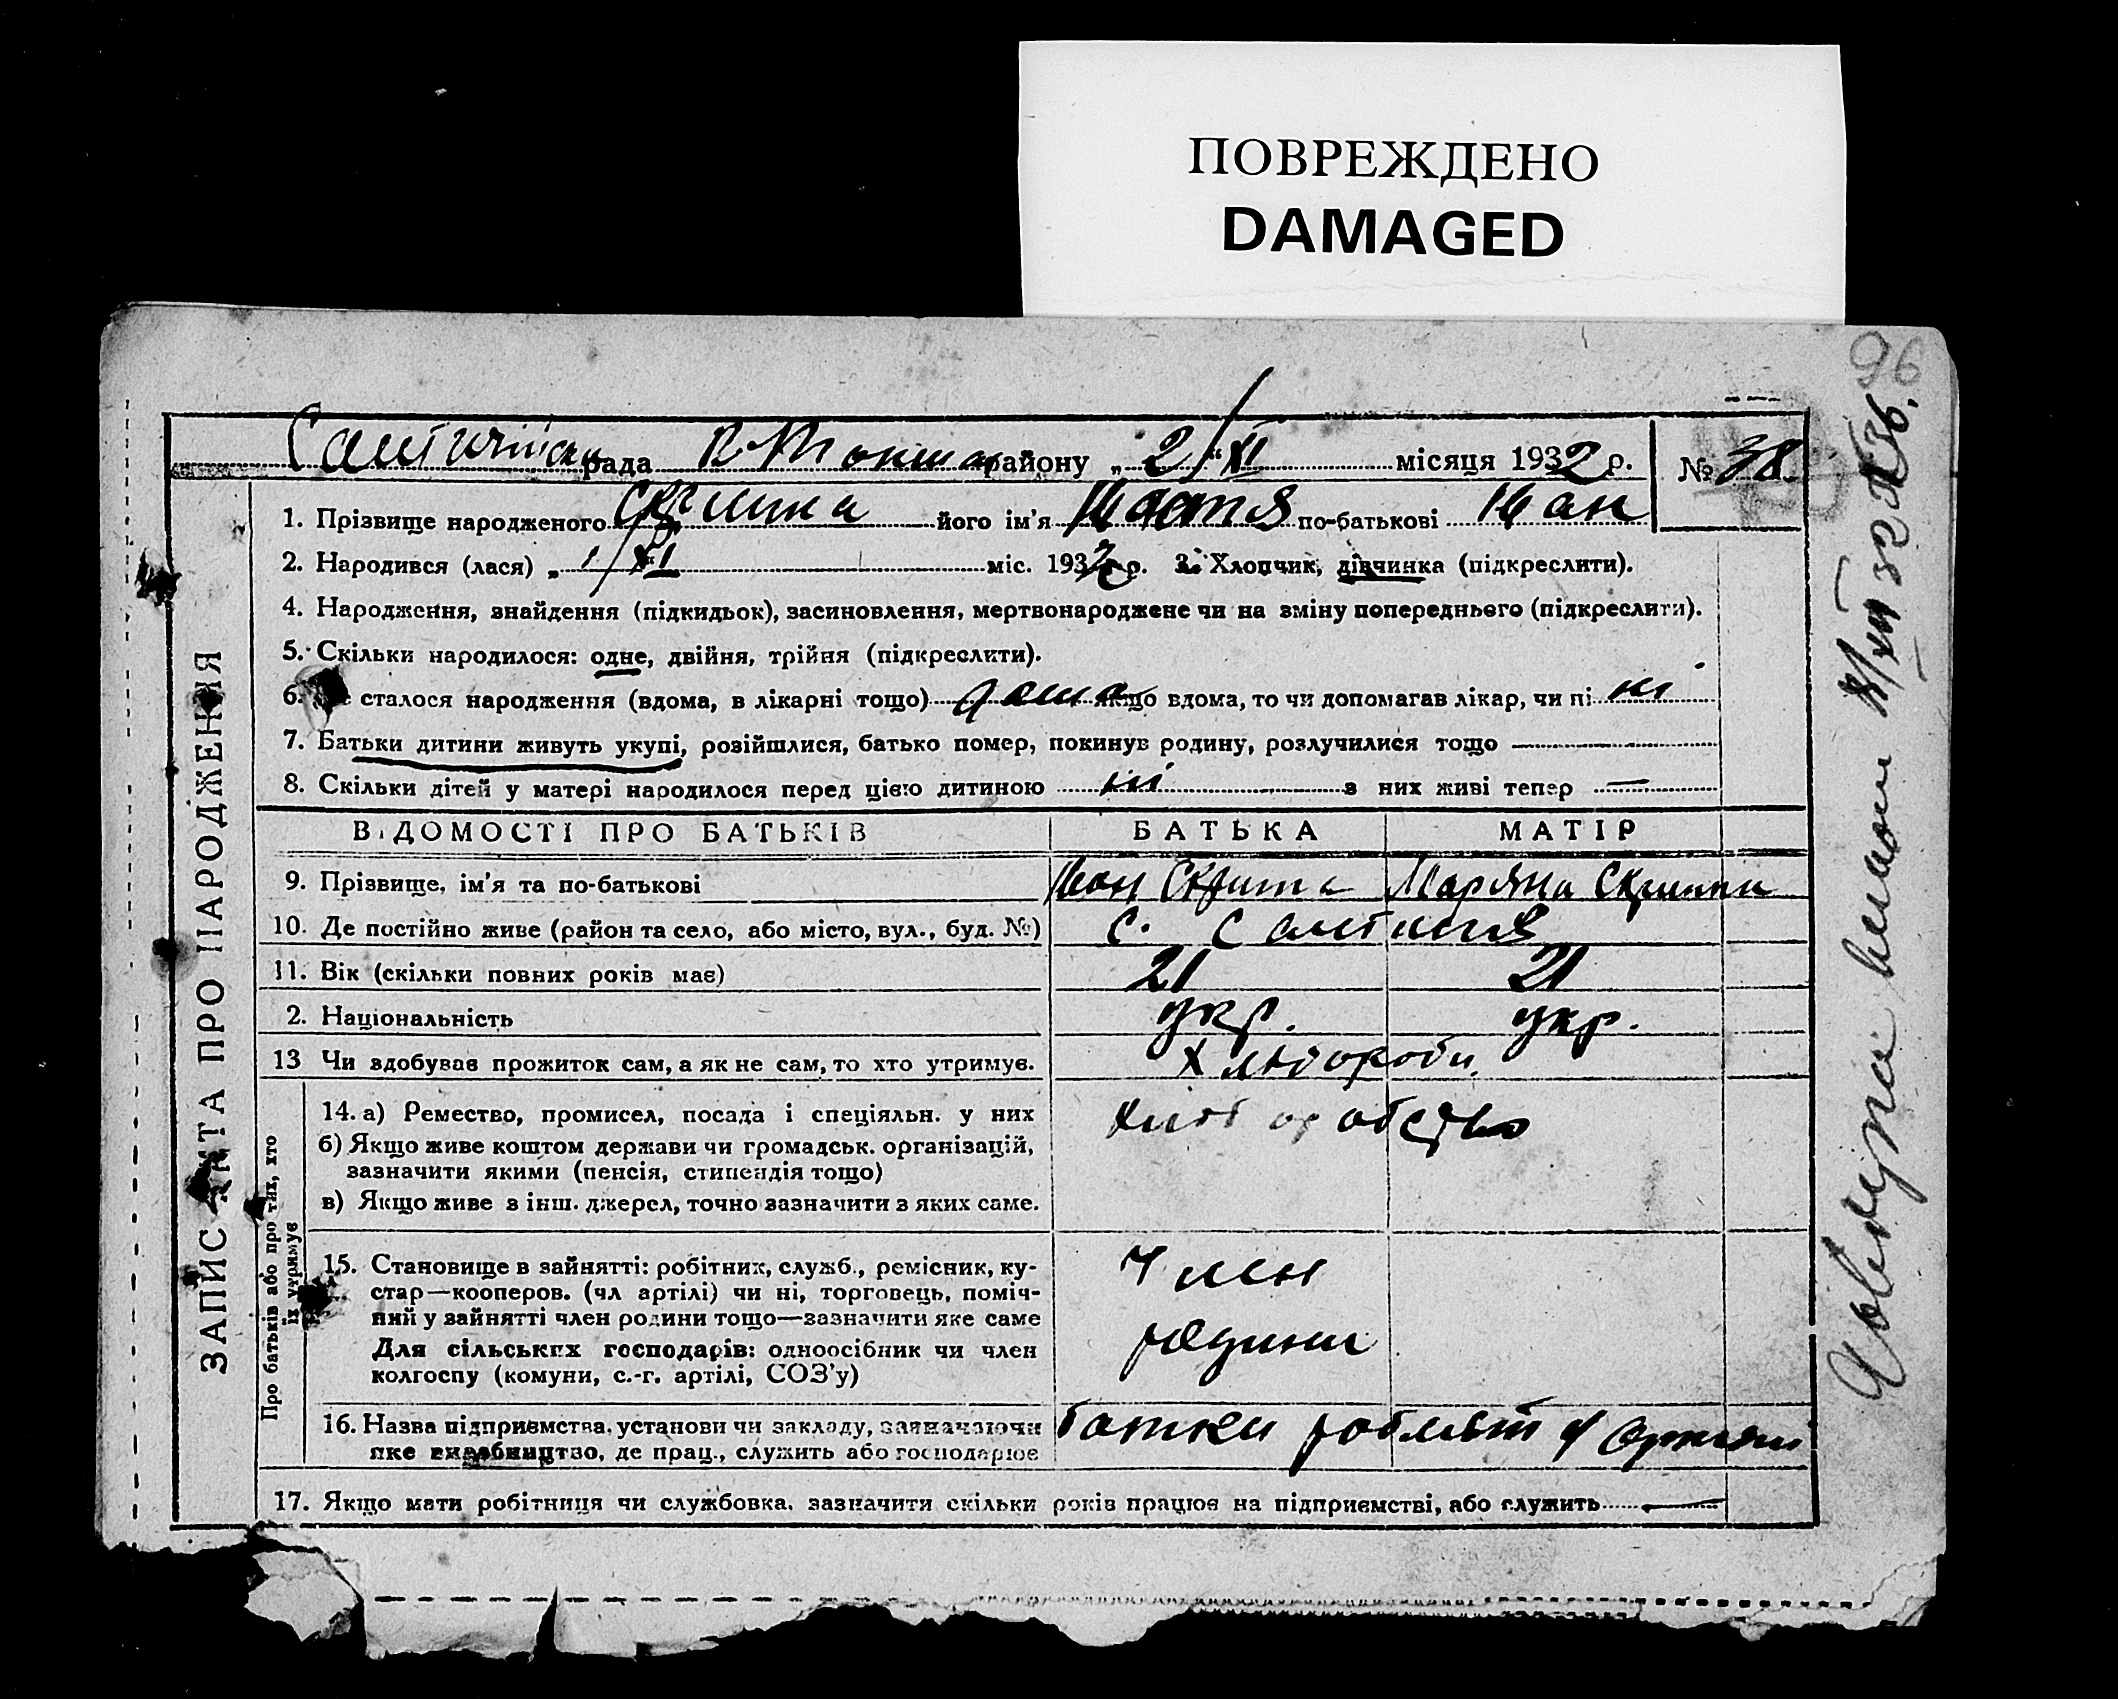 ПОВРЕЖДЕНО
DAMAGED
96
рада району „ 2 “ XI місяця 1932 р. № 38
1. Прізвище народженого його ім'я Настя по-батькові Іван
2. Народився (лася) „ 1/XI міс. 1932 р. 3. Хлопчик, дівчинка (підкреслити).
4. Народження, знайдення (підкидьок), засиновлення, мертвонароджене чи на зміну попереднього (підкреслити).
5. Скільки народилося: одне, двійня, трійня (підкреслити).
6. сталося народження (вдома, в лікарні тощо) дома якщо вдома, то чи допомагав лікар, чи ні ні
7. Батьки дитини живуть укупі, розійшлися, батько помер, покинув родину, розлучилися тощо —
8. Скільки дітей у матері народилося перед цією дитиною ні з них живі тепер —
ВІДОМОСТІ ПРО БАТЬКІВ БАТЬКА МАТІР
9. Прізвище, ім'я та по-батькові Іван Маряна
10. Де постійно живе (район та село, або місто, вул., буд. №) с.
11. Вік (скільки повних років має) 21 21
2. Національність укр. укр.
13 Чи здобував прожиток сам, а як не сам, то хто утримує. Хлібороби
14. а) Ремество, промисел, посада і спеціяльн. у них
б) Якщо живе коштом держави чи громадськ. організацій,
зазначити якими (пенсія, стипендія тощо)
в) Якщо живе з інш. джерел, точно зазначити з яких саме.
15. Становище в зайнятті: робітник, служб., ремісник, ку-
стар—кооперов. (чл артілі) чи ні, торговець, поміч-
ний у зайнятті член родини тощо—зазначити яке саме
Для сільських господарів: одноосібник чи член
колгоспу (комуни, с.-г. артілі, СОЗ'у)
Член
родини
16. Назва підприємства, установи чи закладу, зазначаючи
яке виробництво, де прац., служить або господарює
батки роблять
17. Якщо мати робітниця чи службовка, зазначити скільки років працює на підприємстві, або служить —
ЗАПИС АКТА ПРО НАРОДЖЕННЯ
Про батьків або про тих, хто
їх утримує